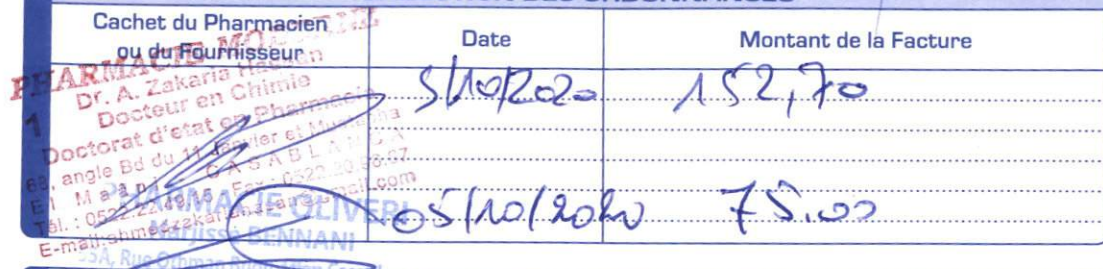 EXECUTION DES ORDONNANCES
Cachet du Pharmacien
ou du Fournisseur
Date
Montant de la Facture
PHARMACIE
Dr. A. Zakaria
Docteur en Chimie
Doctorat d'etat en Pharmacie
angle Bd du 11 Janvier et
CASABLANCA
E-mail:
5/10/2020 152,70
PHARMACIE OLIVERI
Narjisse BENNANI
05/10/2020 75.00